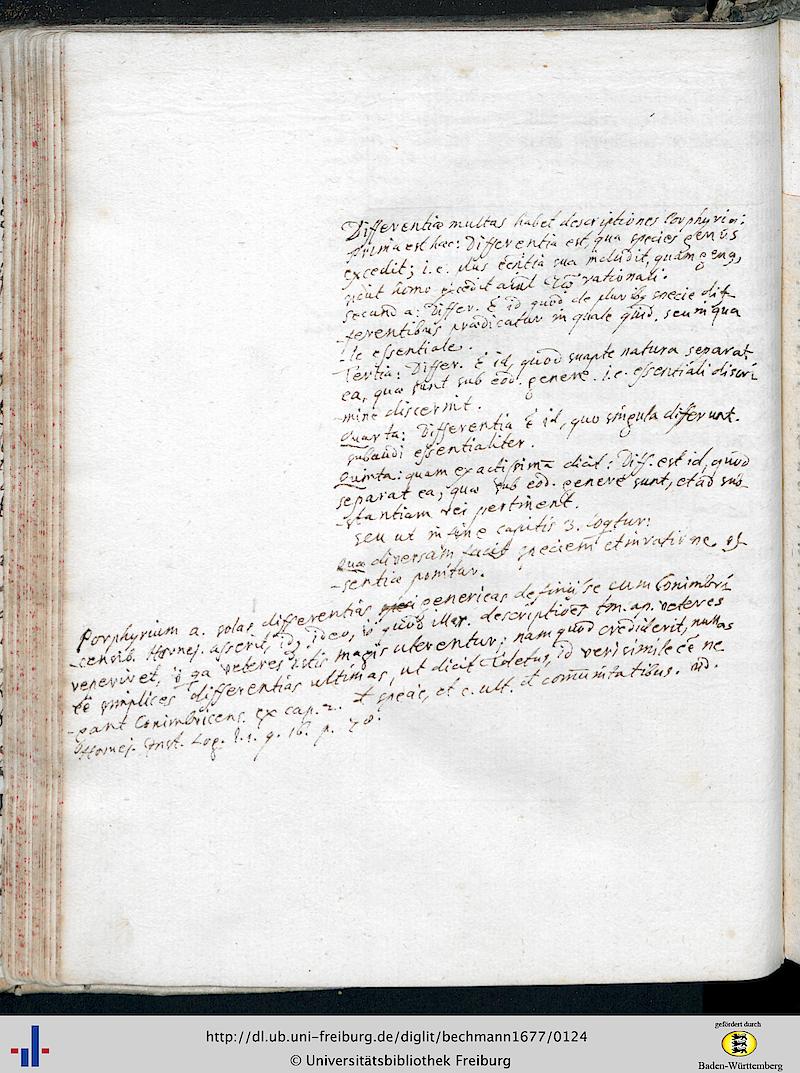 Differentiæ multas habet descriptiones Porphyrius:
prima est hæc: Differentia est, qua species genus
excedit; i.e. plus sua includit, quam geng,
sicut homo excedit rationali.
secunda: Differ. ē id quod de pluribg specie dif-
-ferentibus prædicatur in quale quid, seu in qua
-le essentiale.
Tertia: Differ. ē id, quod suapte natura separat
ea, quæ sunt sub eod. genere. i.e. essentiali discri
-mine discernit.
Quarta: Differentia ē id, quo singula differunt.
subaudi essentialiter.
Quinta: quam exactissimā dicit: Diff. est id, quod
separat ea, quæ sub eod. genere sunt, et ad sub
-stantiam rei pertinent.
seu ut in fine capitis 3. loqtur:
Quæ diversam facit speciem et in ratione es
-sentiæ ponitur.
Porphyrium a. solas differentias genericas definiisse cum Conimbri
-censib. Hornej. asserit, ideo, descriptiões tm. an. veteres
veneriret, veteres istis magis uterentur; nam quod crediderit, nullas
eē simplices differentias ultimas, ut dicit id verisimile eē ne
-gant Conimbricens. ex cap. 2. speciē, et c. ult. communitatibus. vid.
Hornej. Inst. Log. l. 1. q. 16. p. 78.
http://dl.ub.uni-freiburg.de/diglit/bechmann1677/0124
© Universitätsbibliothek Freiburg
gefördert durch
Baden-Württemberg